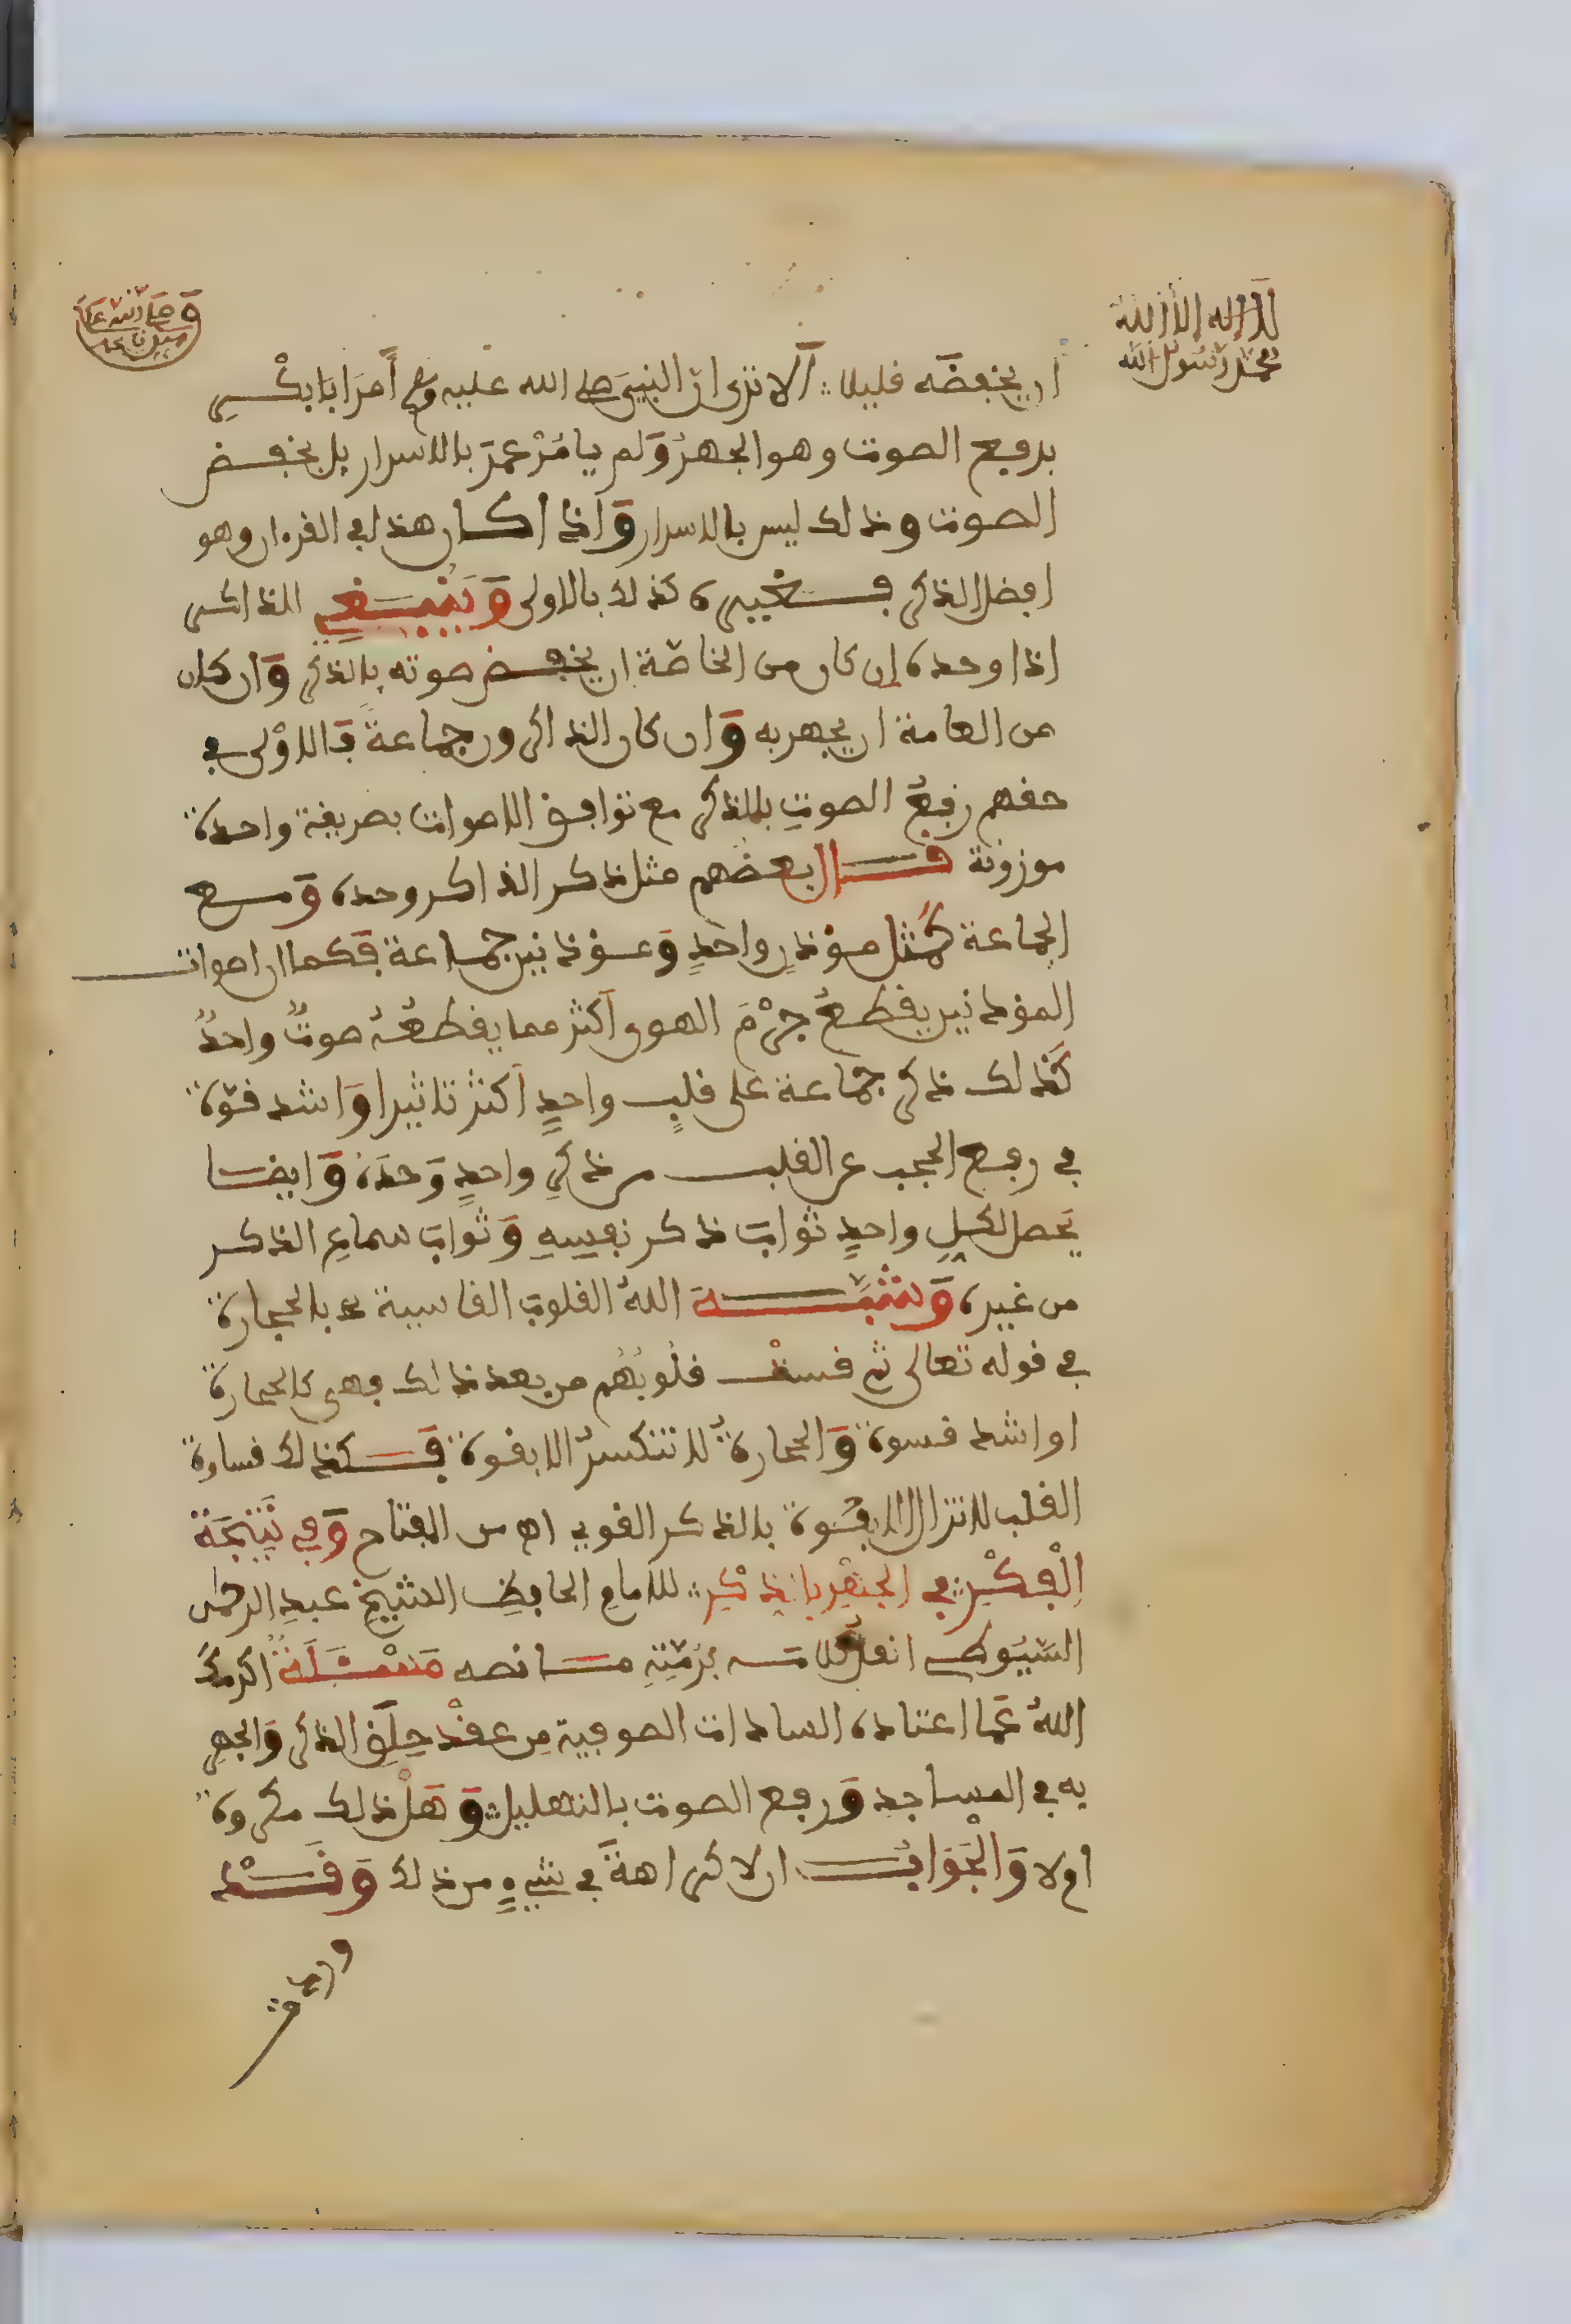 لا إله إلا الله
محمد رسول الله
وصلى الله على
ان يخفضه قليلا ألا ترى ان النبي صلى الله عليه وسلم أمر ابا بكر
برفع الصوت وهو الجهر ولم يامر عمر بالاسرار بل بخفض
الصوت وذلك ليس بالاسرار وإذا كان هذا في القرءان وهو
افضل الذكر فغيره كذلك بالاولى وينبغي للذاكر
اذا وحده إن كان من الخاصة ان يخفض صوته بالذكر وان كان
من العامة ان يجهر به وان كان الذاكرون جماعةً فالاوْلى في
حقهم رفعُ الصوتِ بالذكر مع توافق الاصوات بطريقة واحدة
موزونة قال بعضهم مثل ذكر الذاكر وحده ومع
الجماعة كمثل موذن واحدٍ وموذنين جماعة فكما ان اصوات
الموذنين يقطعُ جِرْمَ الهوى أكثر مما يقطعُهُ صوتٌ واحدٌ
كَذلك ذكر جماعة على قلبٍ واحدٍ أكثر تاثيرا وَاشد قوة
في رفع الحجب عن القلب من ذكرِ واحدٍ وَحدَهُ وَايضا
يَحصل لكلِ واحدٍ ثواب ذكر نفسِهِ وَثواب سماعِ الذكر
من غيره وَشبَّه اللهُ القلوب القاسية بالحجارة
في قوله تعالى ثم قستْ قلُوبُهُم من بعد ذلك فهى كالحجارة
او اشد قسوة وَالحجارةُ لا تنكسرُ الا بقوة فكذلك قساوة
القلب لا تزال الا بقُوة بالذكر القوي اه من المفتاح وَفي نَتيجَة
الْفِكْرِ في الجهْرِ بالذكْرِ للامامِ الحافِظِ الشيخِ عبدِ الرحمن
السّيُوطي انقل كلامه بِرُمّتِهِ ما نصه مَسْئَلَة اكرمك
اللهُ عَما اعتاده السادات الصوفية مِن عقْد حِلَق الذكر وَالجهر
به في المساجد وَرفع الصوت بالتهليل وَهَلْ ذلك مكروه
ام لا وَالْجَوَابُ ان لا كراهةَ في شيءٍ من ذلك وَقَدْ
وردت